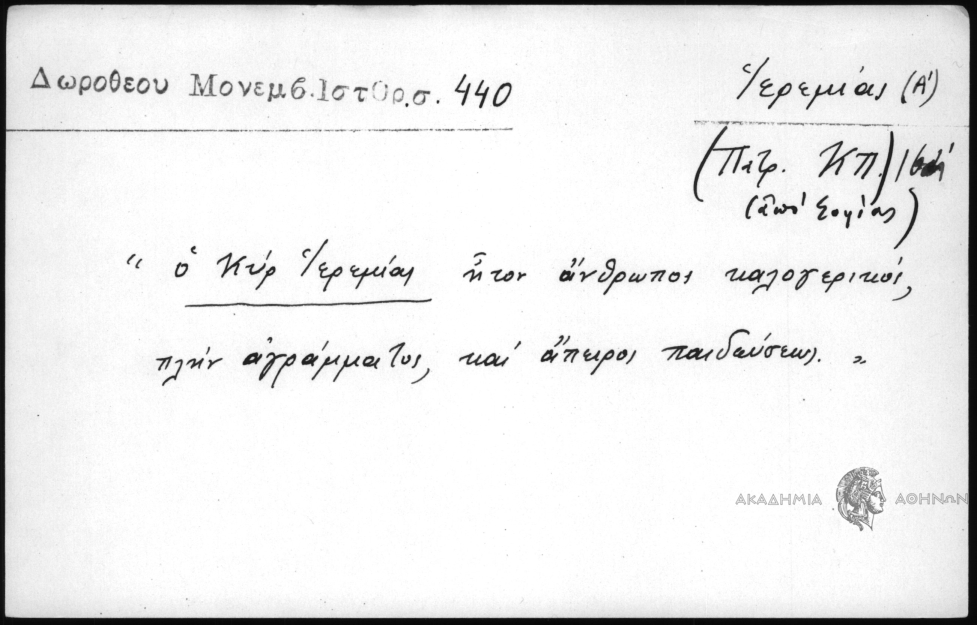 Δωροθεου Μονεμβ.Ιστορ.σ. 440
Ἱερεμίας (Α')
(Πατρ. ΚΠ.)
(ἀπό Σοφίας)
“ ὁ Κύρ Ἱερεμίας ἦτον ἄνθρωπος καλογερικός,
πλήν ἀγράμματος, καί ἄπειρος παιδεύσεως. „
ΑΚΑΔΗΜΙΑ ΑΘΗΝΩΝ